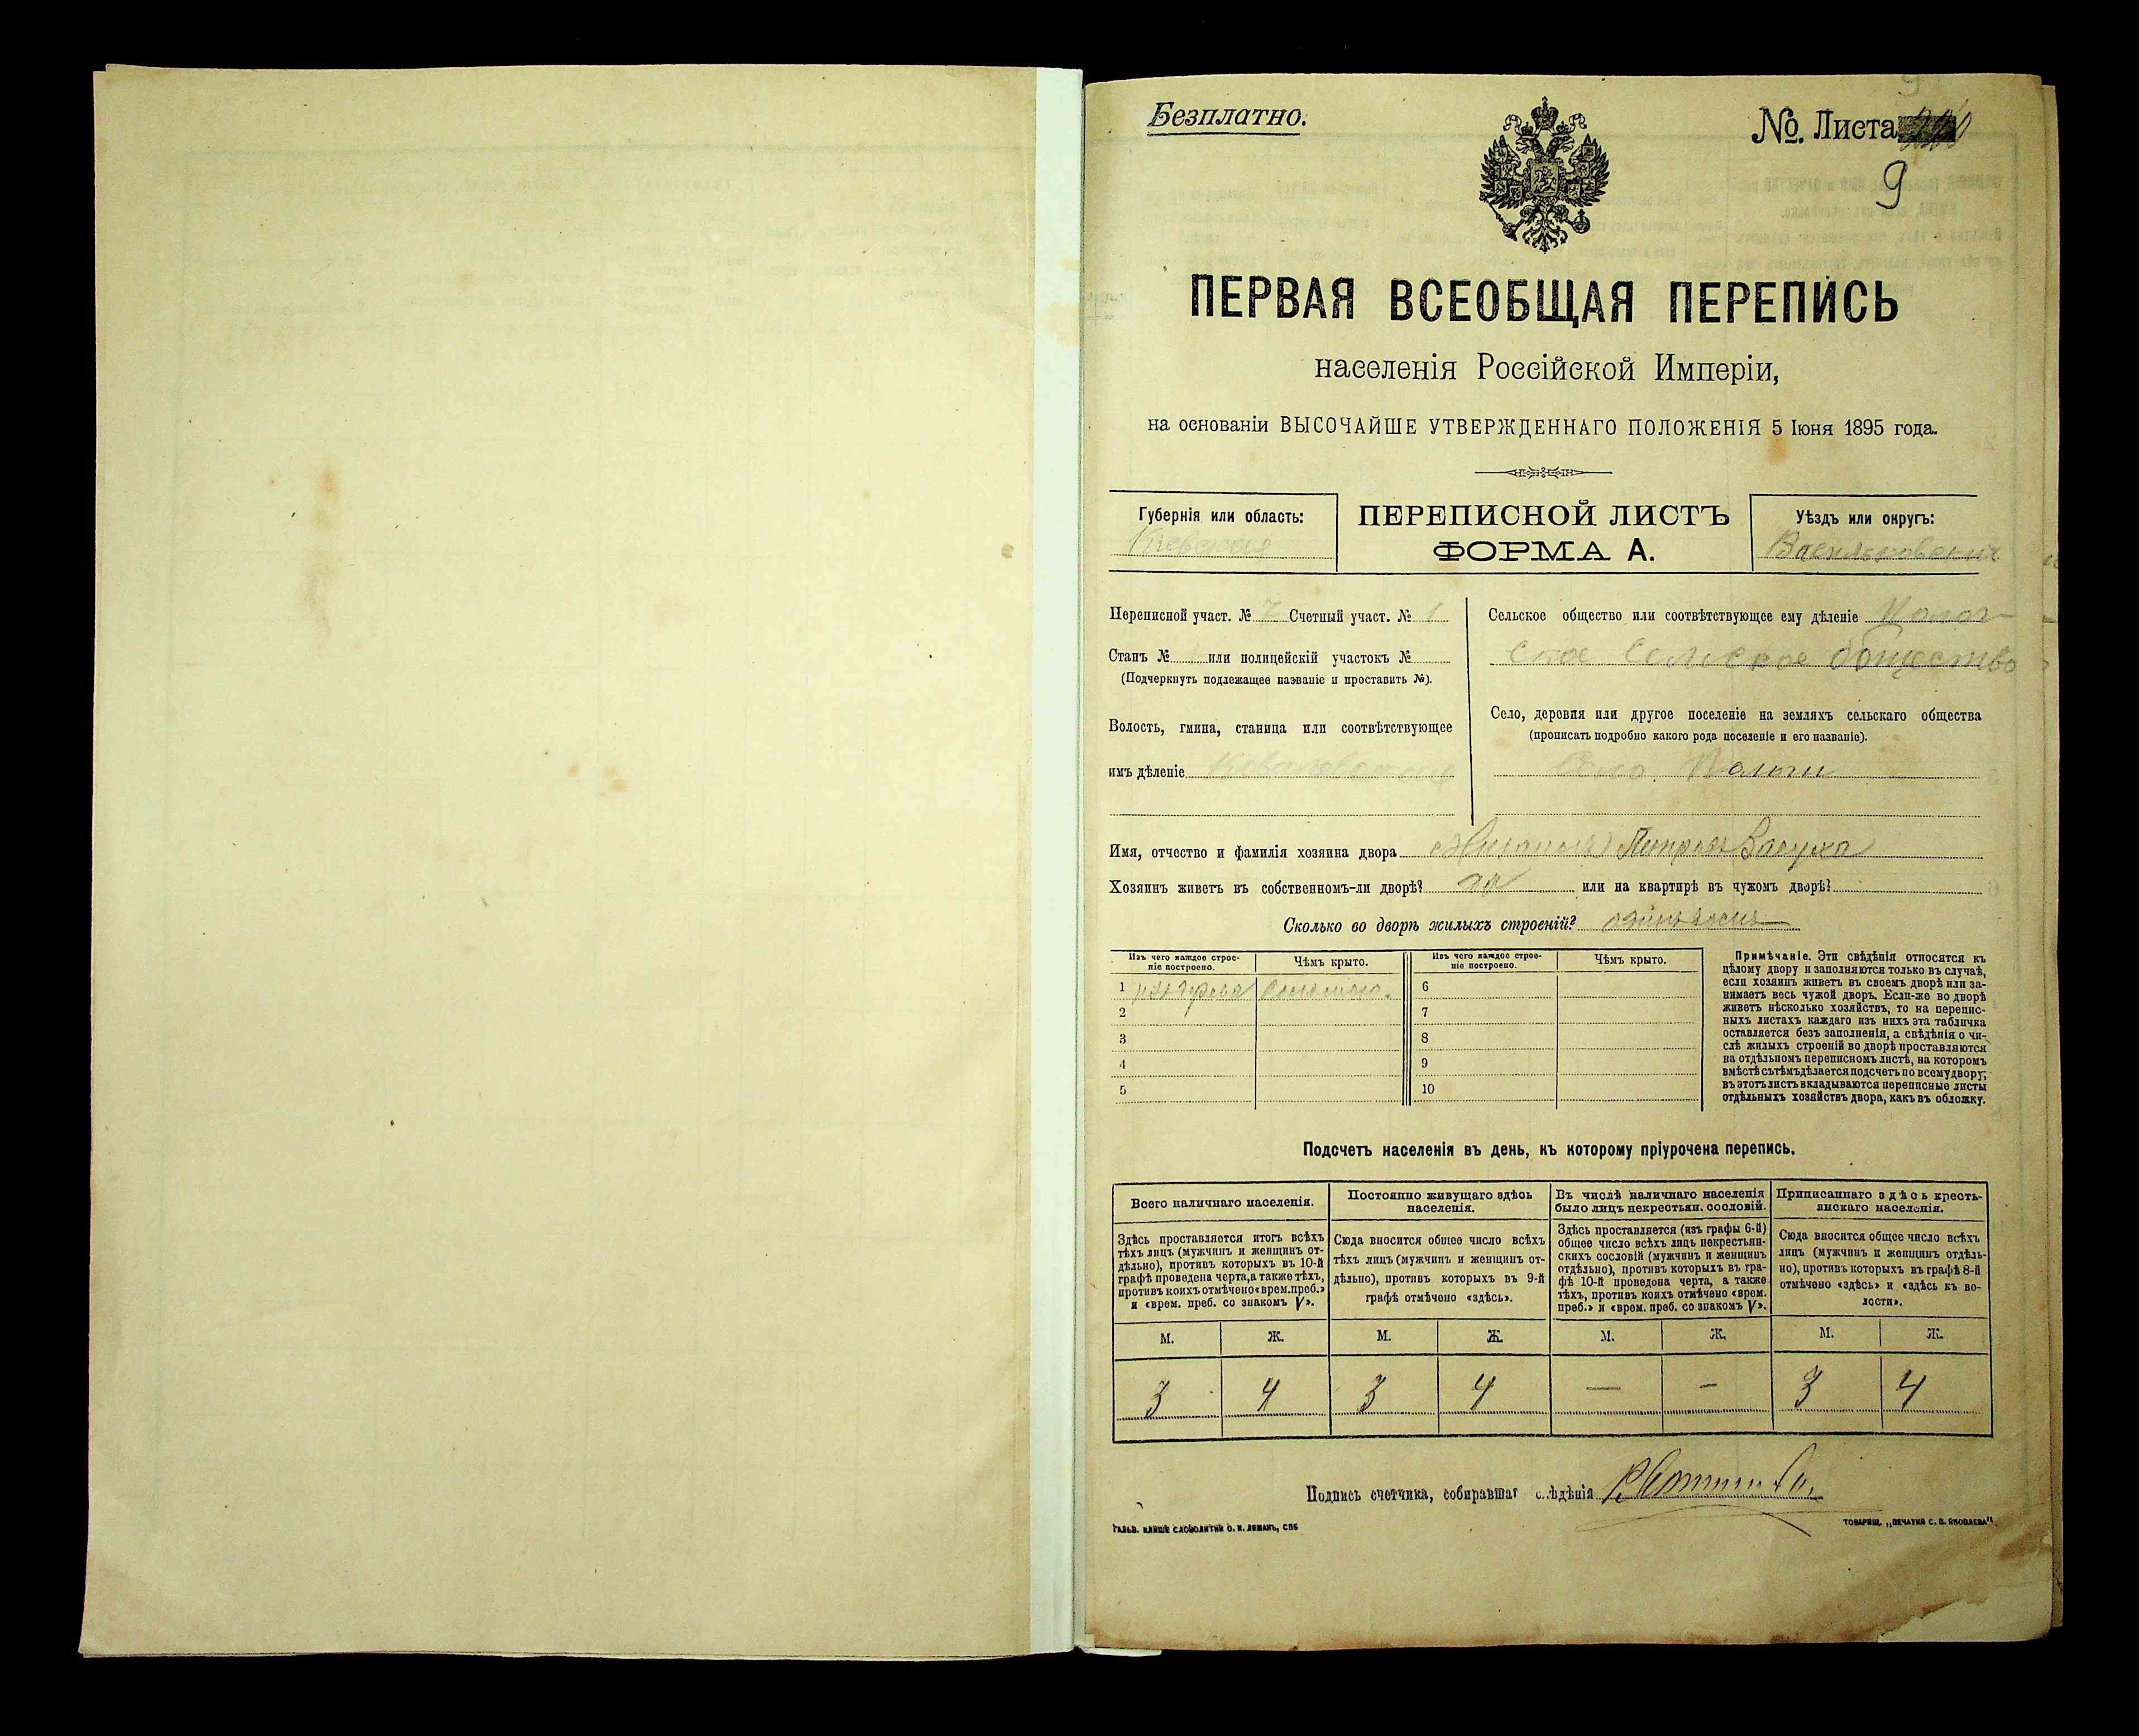 Безплатно.
№. Листа
9
ПЕРВАЯ ВСЕОБЩАЯ ПЕРЕПИСЬ
населенія Россійской Имперіи,
на основаніи ВЫСОЧАЙШЕ УТВЕРЖДЕННАГО ПОЛОЖЕНІЯ 5 Іюня 1895 года.
Губернія или область:
Кіевская
ПЕРЕПИСНОЙ ЛИСТЪ
ФОРМА А.
Уѣздъ или округъ:
Васильковскій
Переписной участ. № 7 Счетный участ. № 1
Станъ № или полицейскій участокъ №
(Подчеркнуть подлежащее названіе и проставить №).
Волость, гмина, станица или соотвѣтствующее
имъ дѣленіе Ковалевская
Сельское общество или соотвѣтствующее ему дѣленіе
ское Сельское общество
Село, деревня или другое поселеніе на земляхъ сельскаго общества
(прописать подробно какого рода поселеніе и его названіе).
Село
Имя, отчество и фамилія хозяина двора Петровъ Засуха
Хозяинъ живетъ въ собственномъ-ли дворѣ? да или на квартирѣ въ чужомъ дворѣ?
Сколько во дворѣ жилыхъ строеній? одинъ
Изъ чего каждое строе-
ніе построено.
Чѣмъ крыто.
Изъ чего каждое строе-
ніе построено.
Чѣмъ крыто.
1 изъ дерева Соломою. 6
2 7
3 8
4 9
5 10
Примѣчаніе. Эти свѣдѣнія относятся къ
цѣлому двору и заполняются только въ случаѣ,
если хозяинъ живетъ въ своемъ дворѣ или за-
нимаетъ весь чужой дворъ. Если-же во дворѣ
живетъ нѣсколько хозяйствъ, то на перепис-
ныхъ листахъ каждаго изъ нихъ эта табличка
оставляется безъ заполненія, а свѣдѣнія о чи-
слѣ жилыхъ строеній во дворѣ проставляются
на отдѣльномъ переписномъ листѣ, на которомъ
вмѣстѣ съ тѣмъ дѣлается подсчетъ по всему двору;
въ этотъ листъ вкладываются переписные листы
отдѣльныхъ хозяйствъ двора, какъ въ обложку.
Подсчетъ населенія въ день, къ которому пріурочена перепись.
Всего наличнаго населенія.
Здѣсь проставляется итогъ всѣхъ
тѣхъ лицъ (мужчинъ и женщинъ от-
дѣльно), противъ которыхъ въ 10-й
графѣ проведена черта, а также тѣхъ,
противъ коихъ отмѣчено «врем. преб.»
и «врем. преб. со знакомъ V».
Постоянно живущаго здѣсь
населенія.
Сюда вносится общее число всѣхъ
тѣхъ лицъ (мужчинъ и женщинъ от-
дѣльно), противъ которыхъ въ 9-й
графѣ отмѣчено «здѣсь».
Въ числѣ наличнаго населенія
было лицъ некрестьян. сословій.
Здѣсь проставляется (изъ графы 6-й)
общее число всѣхъ лицъ некрестьян-
скихъ сословій (мужчинъ и женщинъ
отдѣльно), противъ которыхъ въ гра-
фѣ 10-й проведена черта, а также
тѣхъ, противъ коихъ отмѣчено «врем.
преб.» и «врем. преб. со знакомъ V».
Приписаннаго здѣсь кресть-
янскаго населенія.
Сюда вносится общее число всѣхъ
лицъ (мужчинъ и женщинъ отдѣль-
но), противъ которыхъ въ графѣ 8-й
отмѣчено «здѣсь» и «здѣсь къ во-
лости».
М. Ж. М. Ж. М. Ж. М. Ж.
3 4 3 4 — — 3 4
Подпись счетчика, собиравшаг свѣдѣнія
ГАЛЬВ. КЛИШЕ СЛОВОЛИТНИ О. И. ЛЕМАНЪ, СПБ
ТОВАРИЩ. „ПЕЧАТНЯ С. П. ЯКОВЛЕВА"